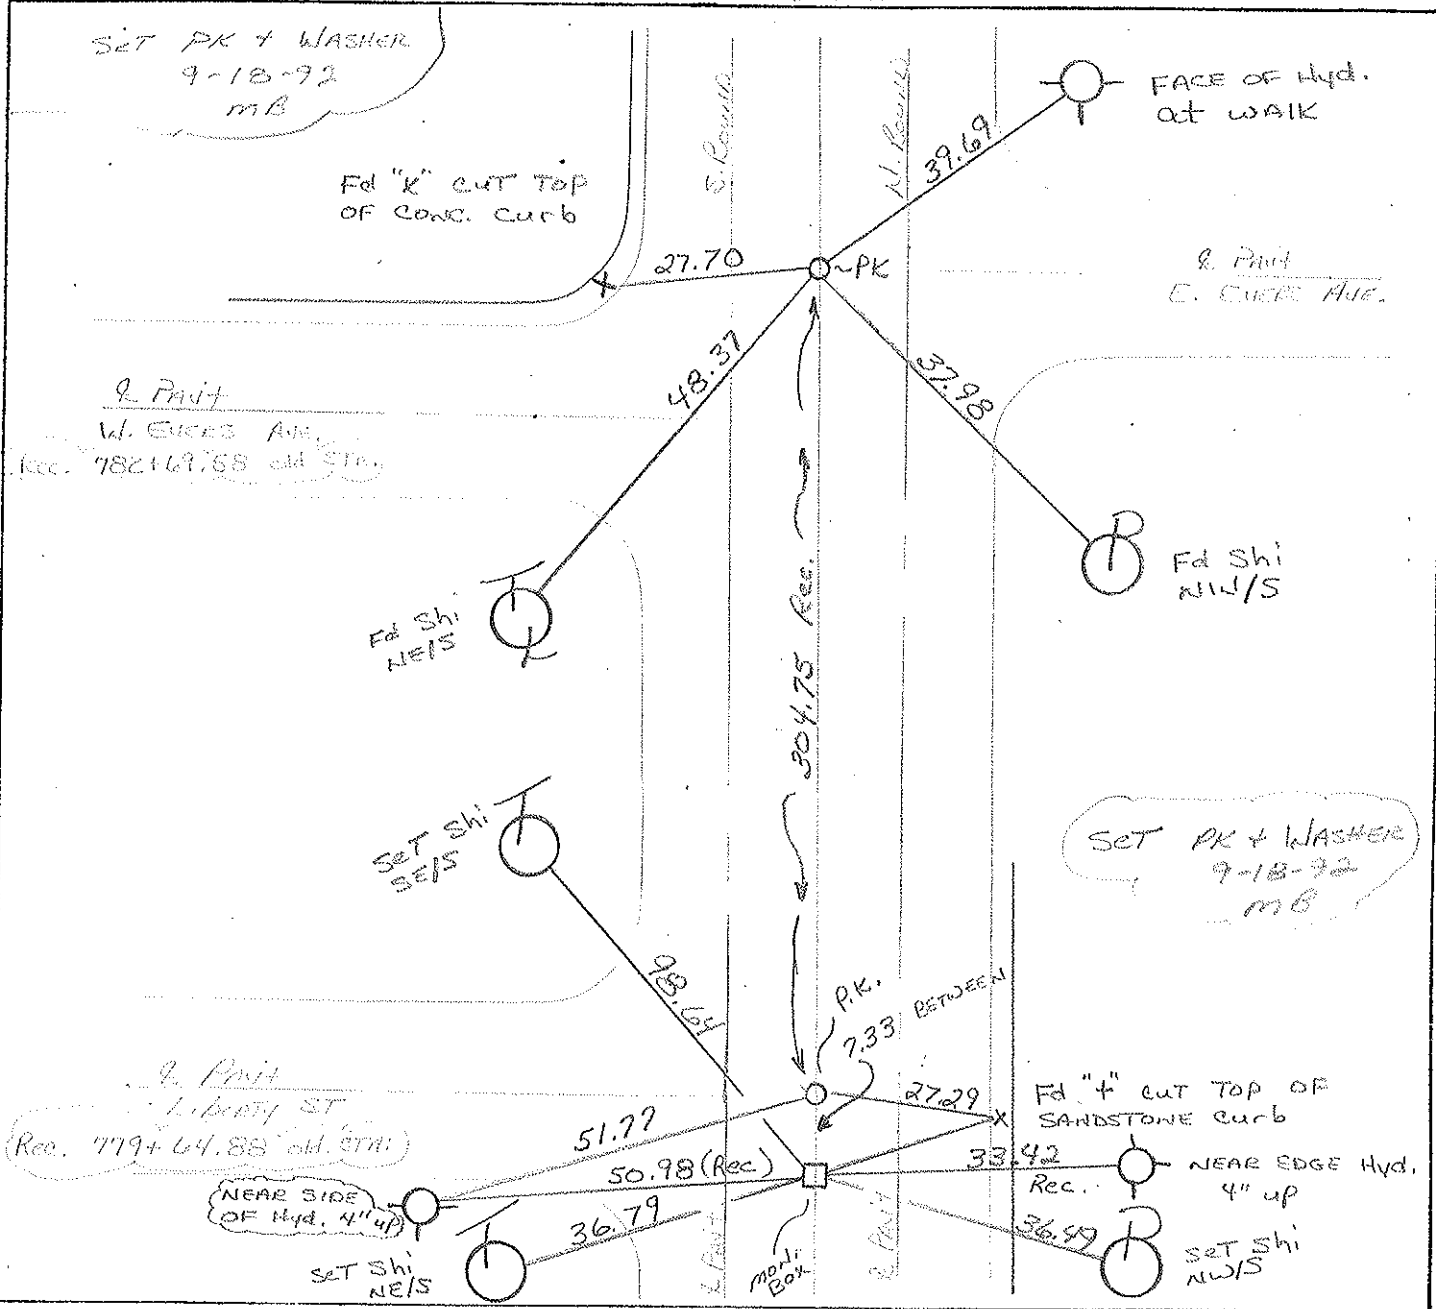 SET PK + WASHER
9-18-92
MB
FACE OF Hyd.
at WALK
39.69
Fd "X" CUT TOP
OF CONC. Curb
27.70
~PK
℄ Pav't
E.
AVE.
48.37
37.98
℄ Pav't
W.
AVE.
Rec. 782+69.58 old STA.
Fd Shi
NW/S
Fd Shi
NE/S
304.75 Rec.
SET Shi
SE/S
SET PK + WASHER
9-18-92
MB
98.64
P.K.
7.33 BETWEEN
℄ Pav't
Liberty ST
(Rec. 779+64.88 old. STA.)
27.29
Fd "+" CUT TOP OF
SANDSTONE Curb
51.77
50.98 (Rec)
33.42
Rec.
NEAR EDGE Hyd.
4" up
NEAR SIDE
OF Hyd. 4" up
36.79
36.49
SET Shi
NE/S
MON.
BOX
SET Shi
NW/S